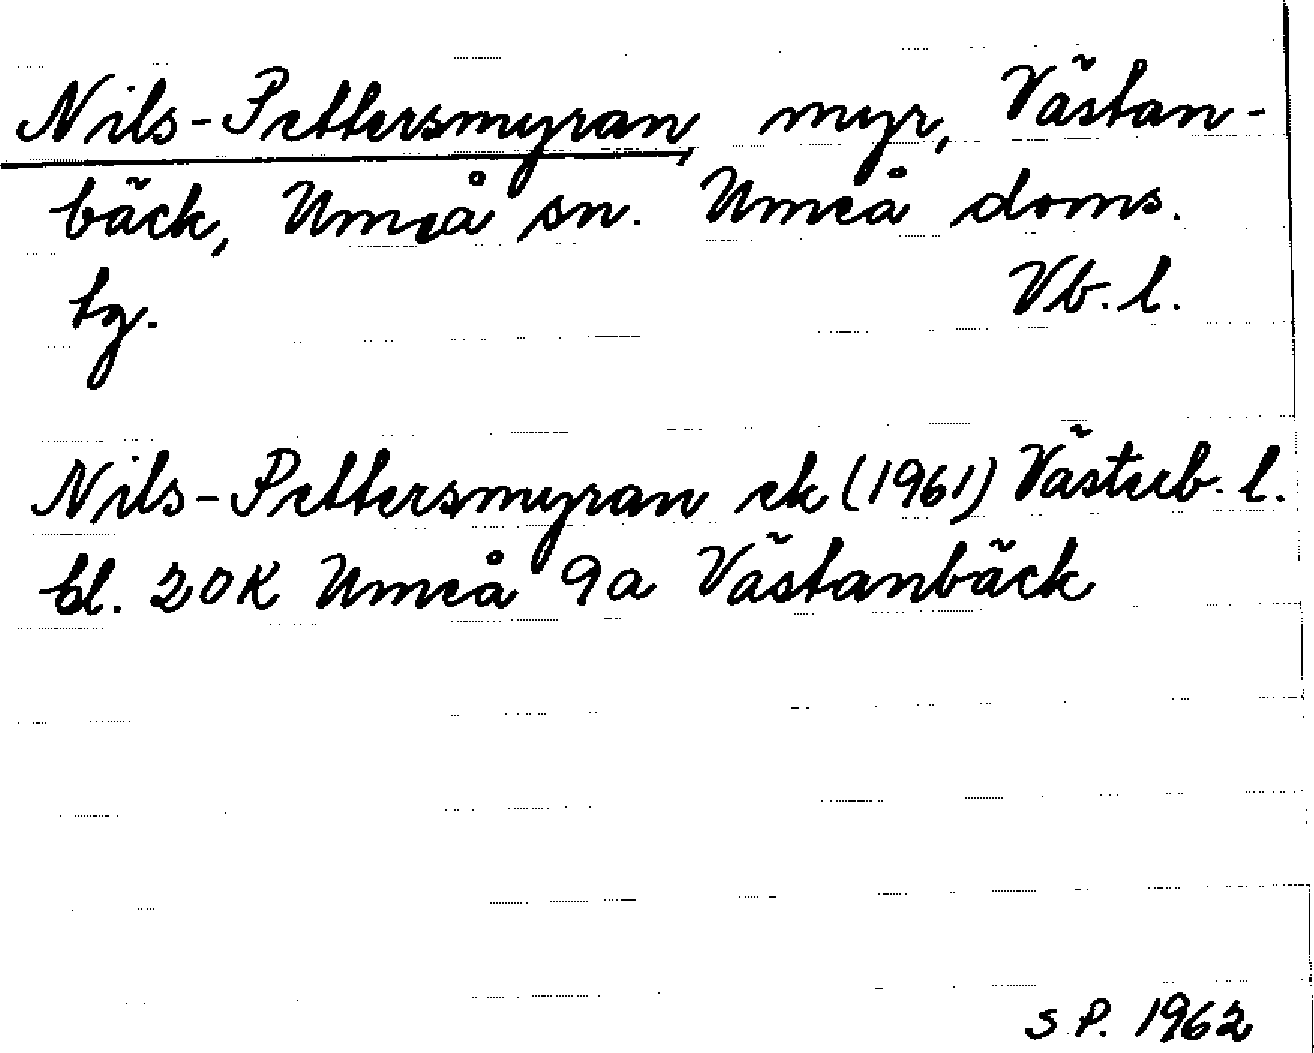 Nils-Pettersmyran, myr, Västan-
bäck, Umeå sn. Umeå doms.
tg. Vb. l.
Nils-Pettersmyran ek (1961) Västerb. l.
bl. 20K Umeå 9a Västanbäck
S P. 1962